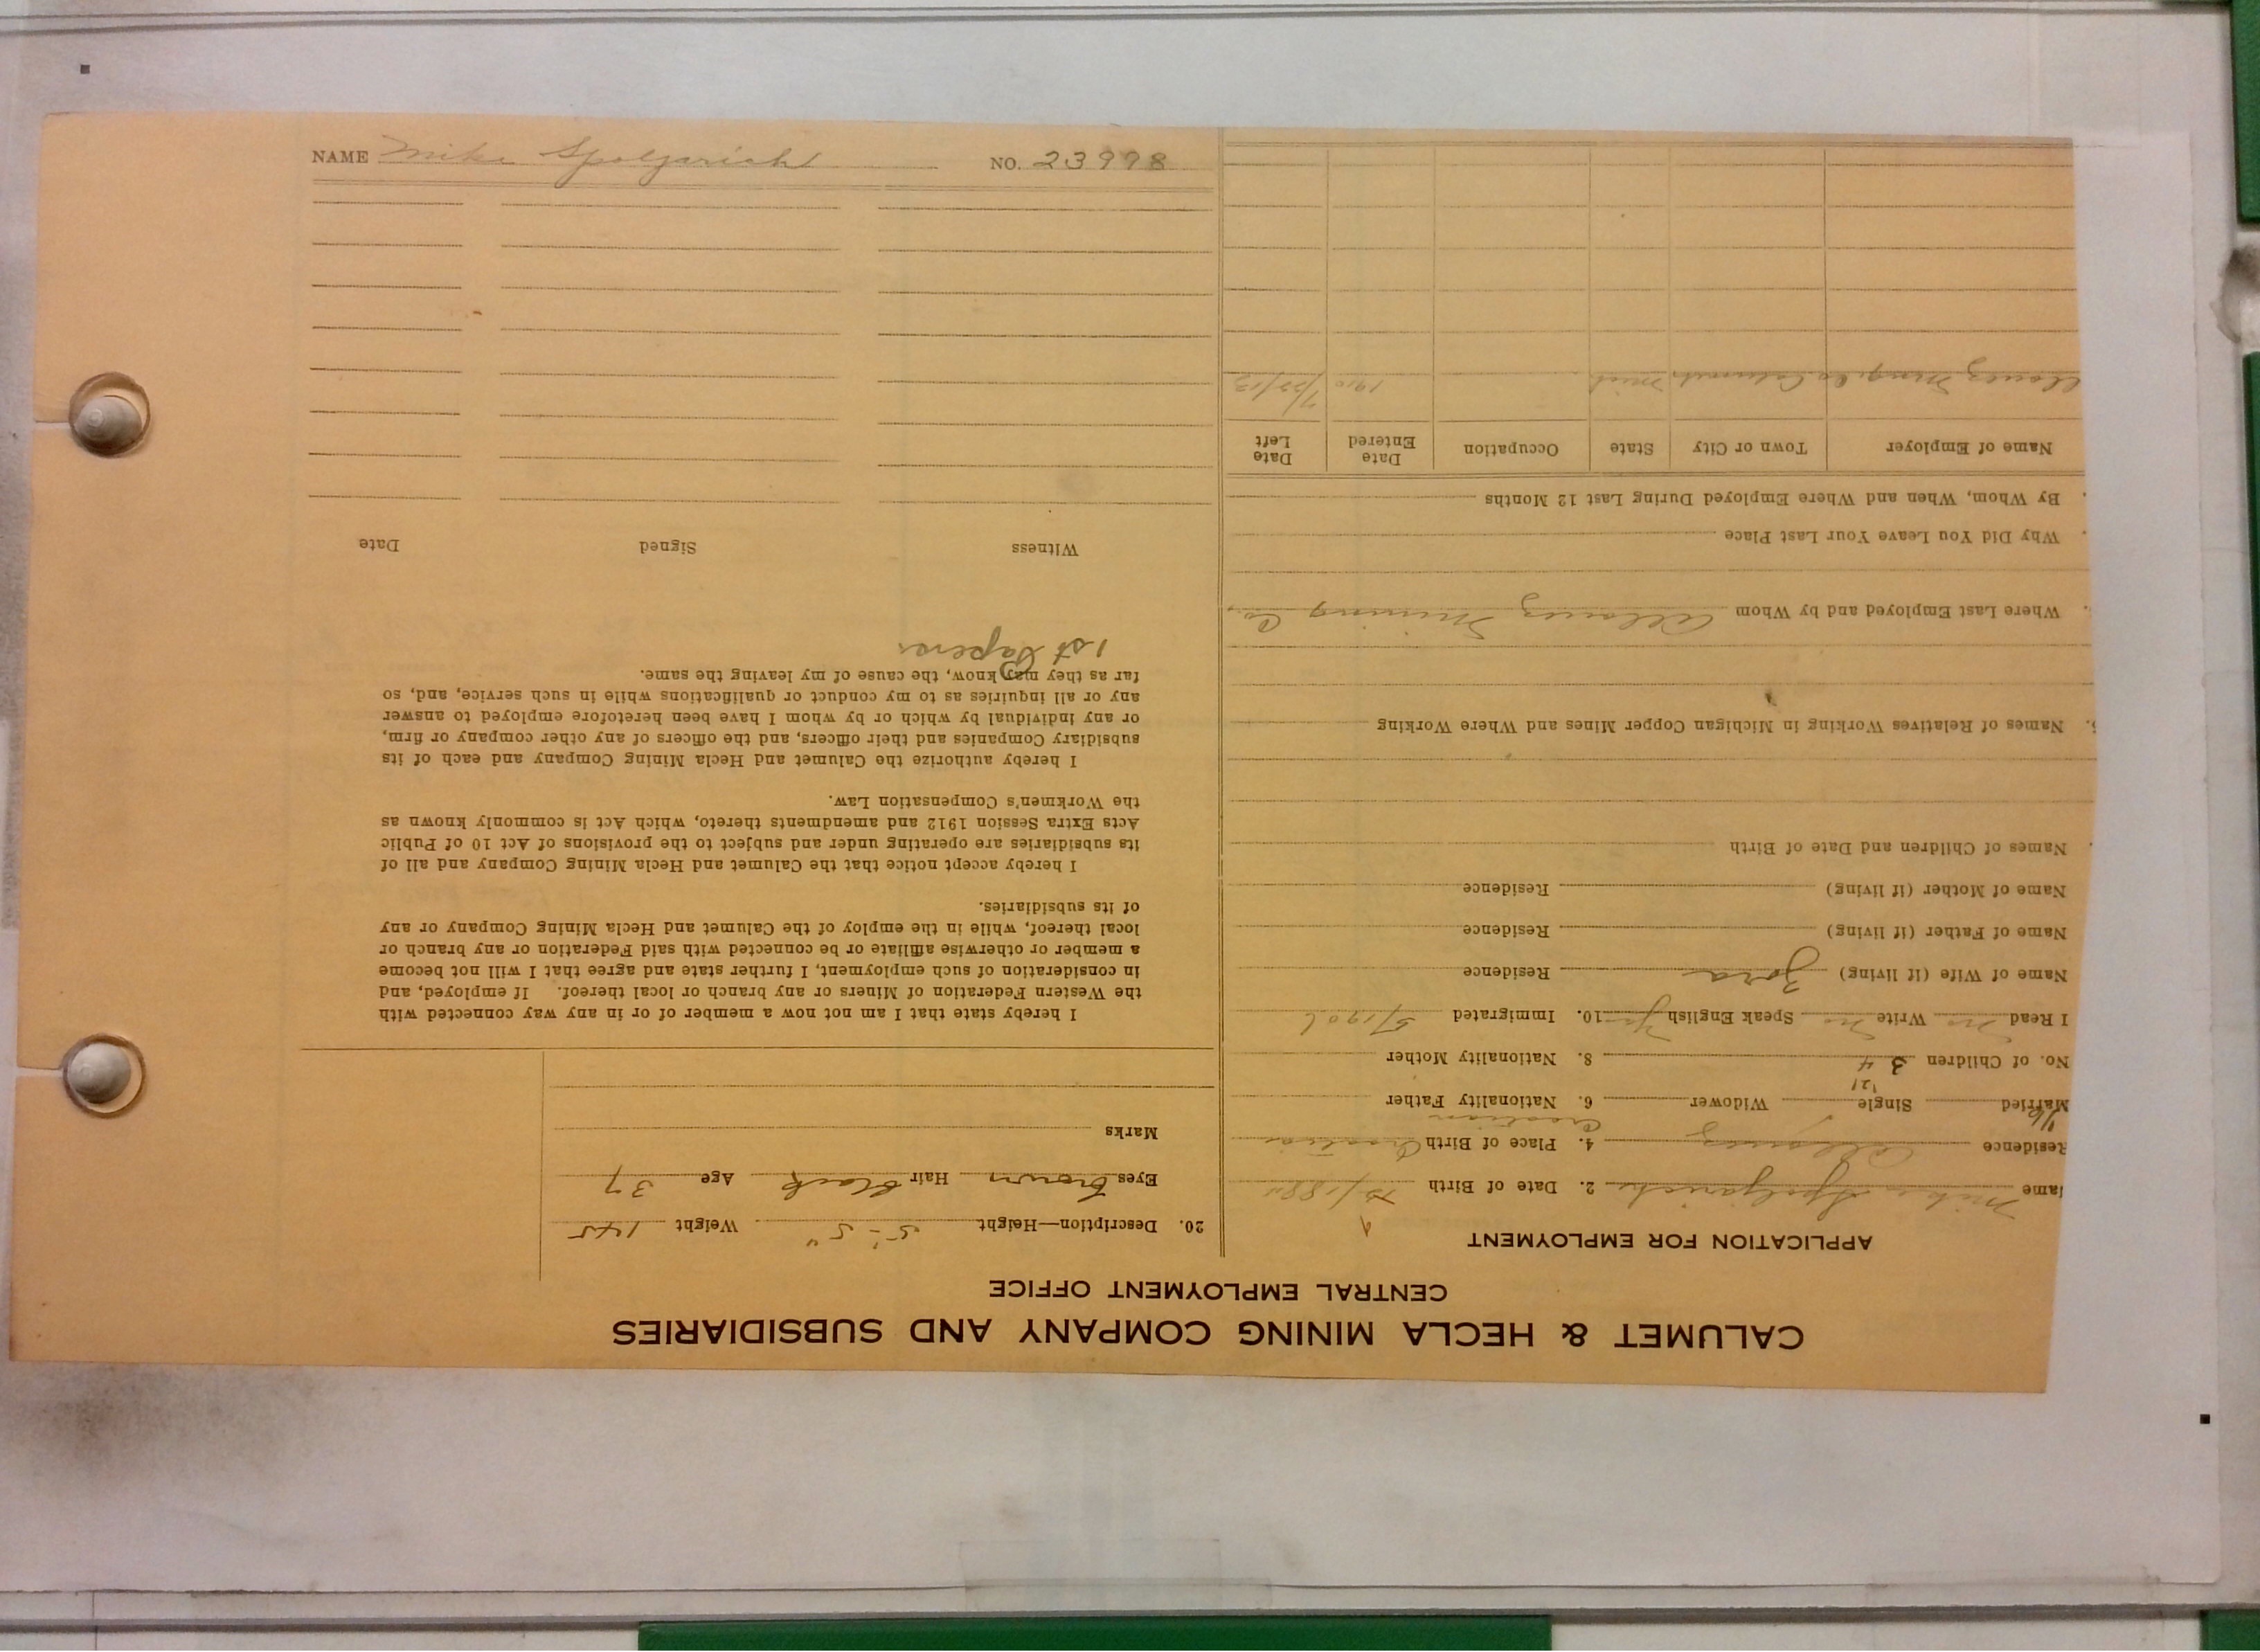 CALUMET & HECLA MINING COMPANY AND SUBSIDIARIES
CENTRAL EMPLOYMENT OFFICE
APPLICATION FOR EMPLOYMENT
ame Mike 2. Date of Birth
Residence Allouez 4. Place of Birth Croatia
Married Single Widower 6. Nationality Father Croatian
'21
No. of Children 3 4 8. Nationality Mother
I Read no Write no Speak English 10. Immigrated 5/1906
Name of Wife (if living) Zora Residence
Name of Father (if living) Residence
Name of Mother (if living) Residence
Names of Children and Date of Birth
Names of Relatives Working in Michigan Copper Mines and Where Working
Where Last Employed and by Whom Allouez Mining Co.
Why Did You Leave Your Last Place
By Whom, When and Where Employed During Last 12 Months
Name of Employer Town or City State Occupation Date Entered Date Left
Allouez Mng. Co. Calumet Mich 1910 7/23/13
20. Description—Height 5'-5" Weight 145
Eyes brown Hair black Age 37
Marks
I hereby state that I am not now a member of or in any way connected with
the Western Federation of Miners or any branch or local thereof. If employed, and
in consideration of such employment, I further state and agree that I will not become
a member or otherwise affiliate or be connected with said Federation or any branch or
local thereof, while in the employ of the Calumet and Hecla Mining Company or any
of its subsidiaries.
I hereby accept notice that the Calumet and Hecla Mining Company and all of
its subsidiaries are operating under and subject to the provisions of Act 10 of Public
Acts Extra Session 1912 and amendments thereto, which Act is commonly known as
the Workmen's Compensation Law.
I hereby authorize the Calumet and Hecla Mining Company and each of its
subsidiary Companies and their officers, and the officers of any other company or firm,
or any individual by which or by whom I have been heretofore employed to answer
any or all inquiries as to my conduct or qualifications while in such service, and, so
far as they may know, the cause of my leaving the same.
1st Papers
Witness Signed Date
NAME Mike Spolgarich NO. 23978